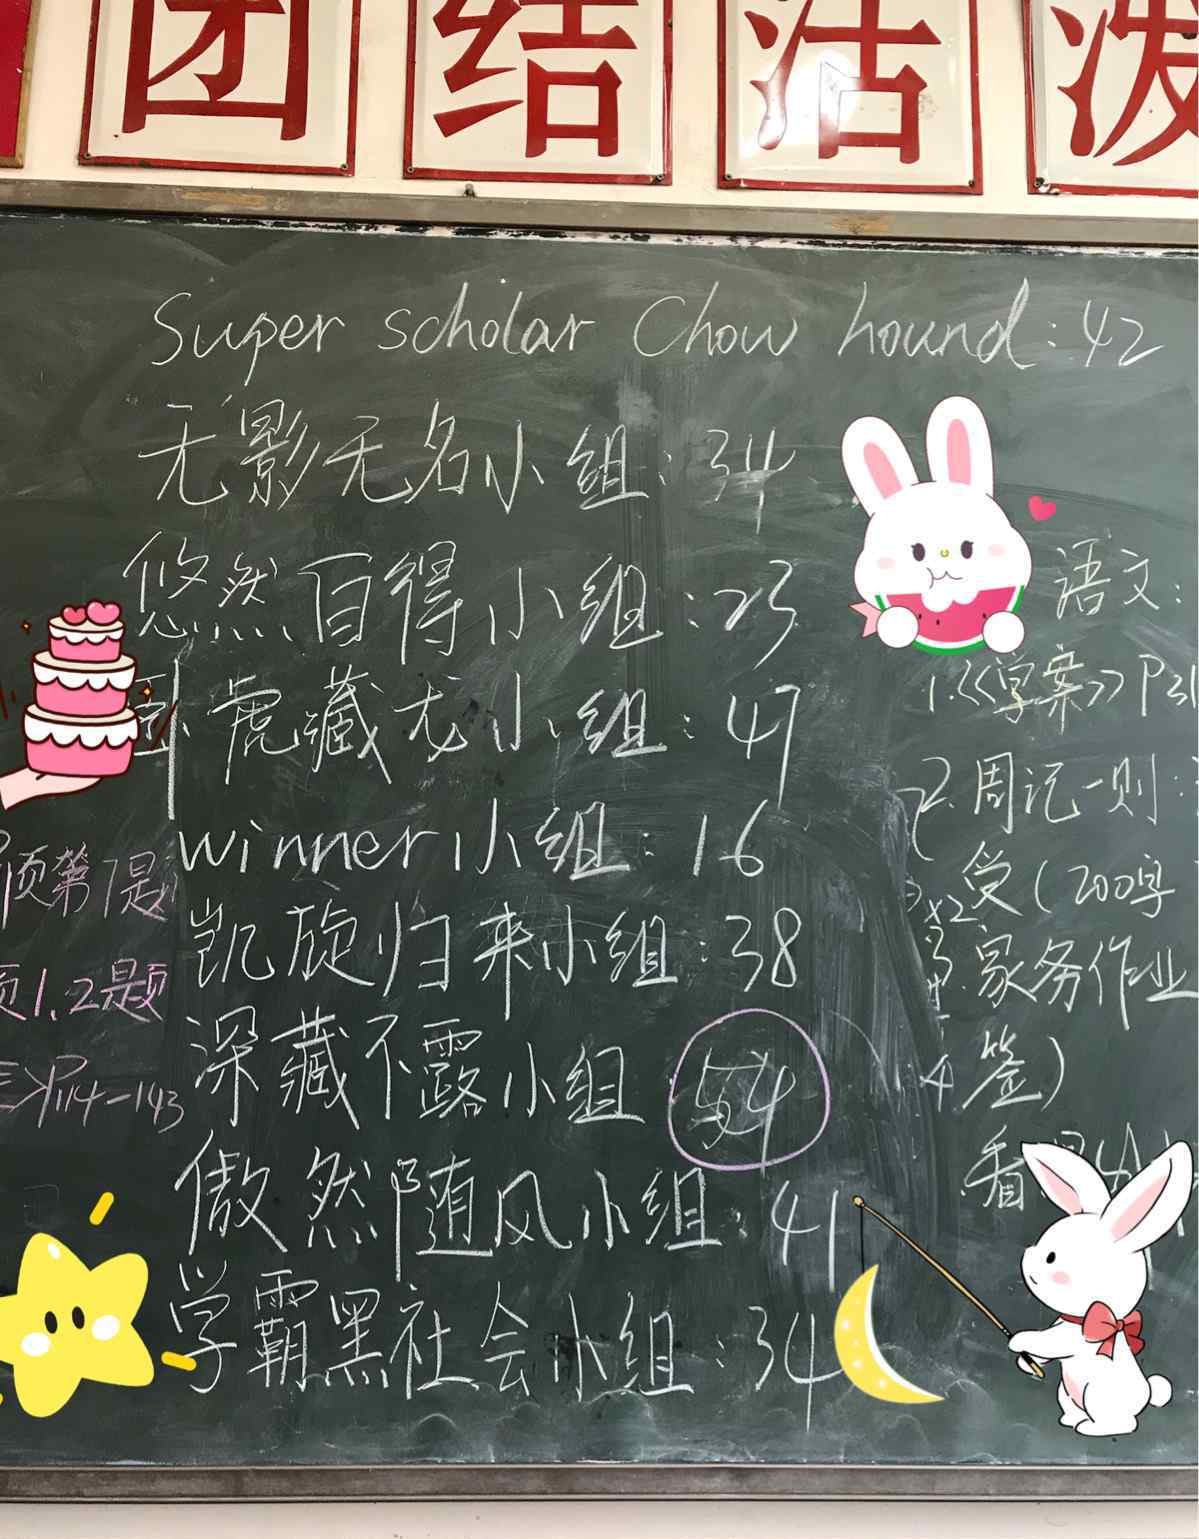 团结活泼
Super scholar Chow hound: 42
无影无名小组: 34
悠然自得小组: 23
卧虎藏龙小组: 47
winner小组: 16
凯旋归来小组: 38
深藏不露小组 54
傲然随风小组: 41
学霸黑社会小组: 34
页第1题
页1.2题
P114-143
语文:
1.《学案》P31
2.周记一则:
受(200字
3.家务作业
4.签)
看